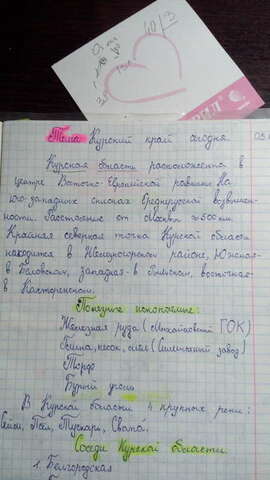 Тема Курский край сегодня.
Курская область расположена в
центре Восточно-Европейской равнине На
юго-западных склонах Среднерусской возвышен-
ности. Расстояние от Москвы ≈ 500 км.
Крайная северная точка Курской области
находится в Железногорском районе, Южная-
в Беловском, западная-в Рыльском, восточная-
в Касторенском.
Полезные ископаемые:
Железная руда (Михайловский ГОК)
Глина, песок, мел (Цементный завод)
Торф
Бурый уголь
В Курской области 4 крупных реки:
Сейм, Псел, Тускарь, Свапа.
Соседи Курской области
1. Белгородская